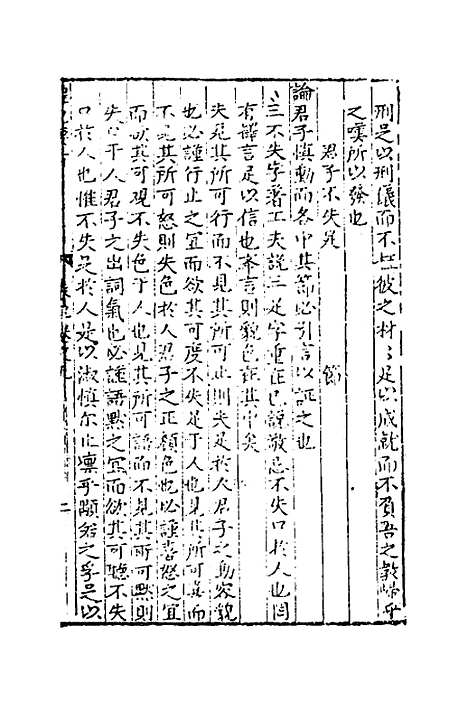 刑足以刑儀而不 彼之材之足以成就而不負吾之教 乎
之嘆所以發也
君子不失足 節
論君子慎動而各中其節必引言以証之也
三不失字著工夫說三足字重在己說敬忌不失口於人也罔
有擇言足以信也本言則貌色在其中矣
失足其所可行而不見其所可止則失足於人君子之動容貌
也必謹行止之宜而欲其可度不失足于人也見其所可喜而
不見其所可怒則失色於人君子之正顏色也必謹喜怒之宜
而欲其可觀不失色于人也見其所可語而不見其所可默則
失口于人君子之出詞氣也必謹語默之宜而欲其可聽不失
口於人也惟不失足於人是以淑慎尔止凜乎顒若之孚足以
二